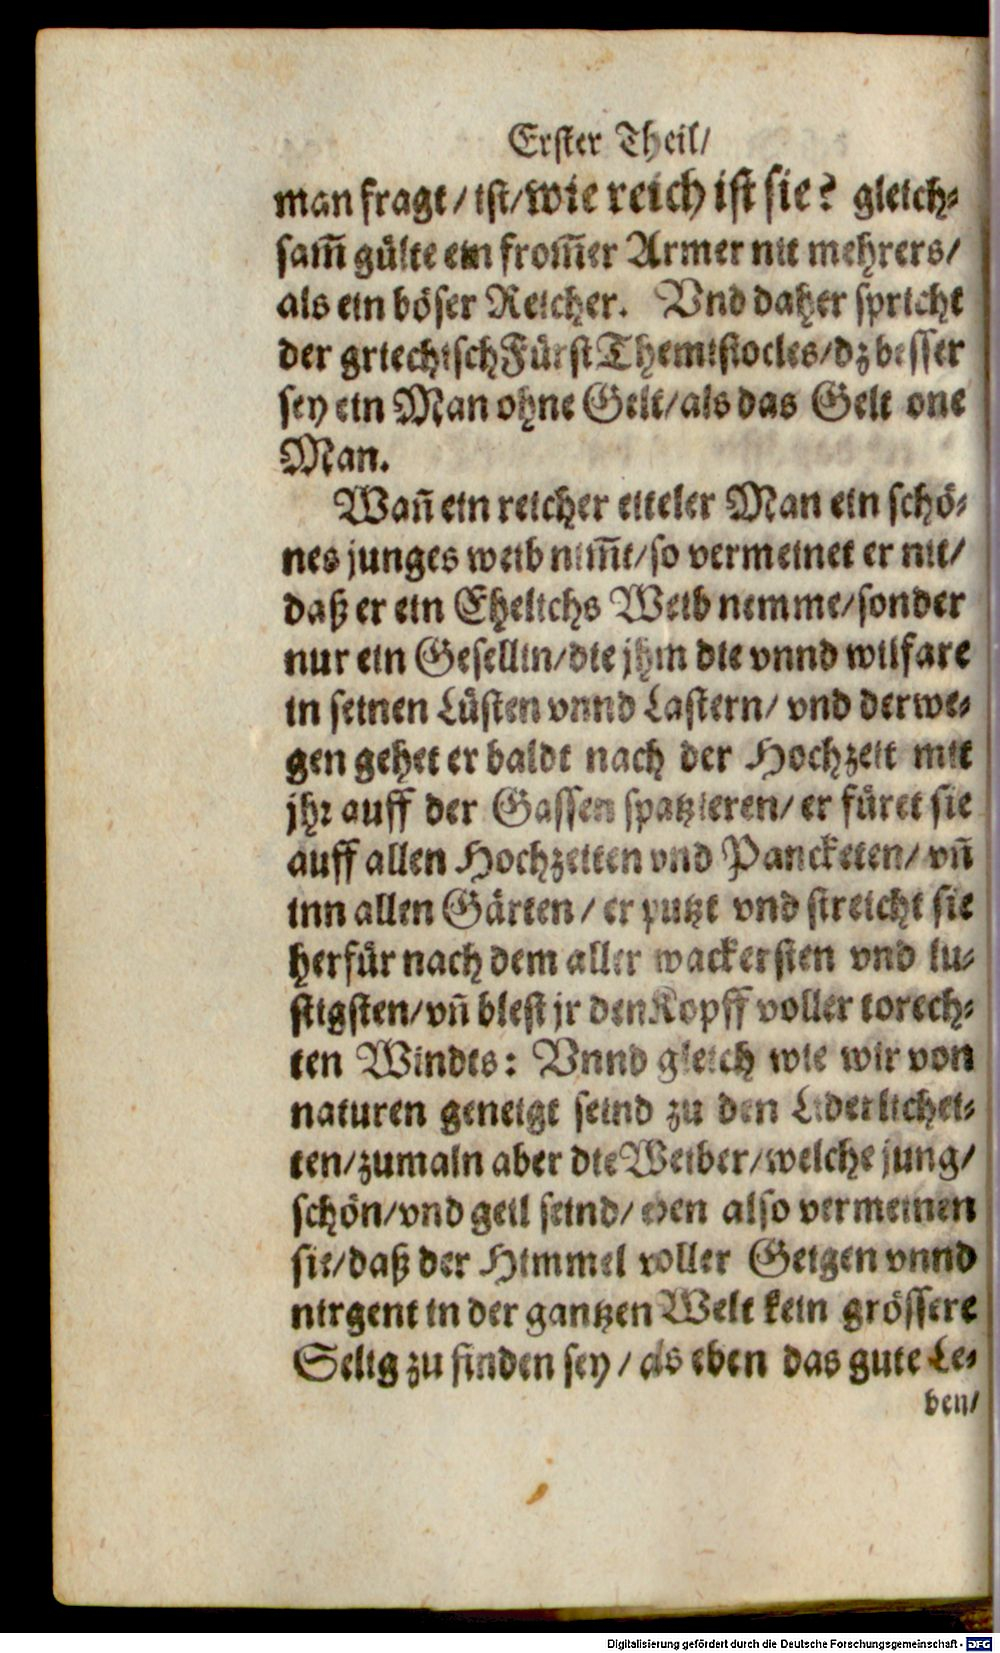 Erster Theil/
man fragt/ ist/ wie reich ist sie? gleich-
sam̃ gülte ein from̃er Armer nit mehrers/
als ein böser Reicher. Vnd daher spricht
der griechisch Fürst Themistocles/ dz besser
sey ein Man ohne Gelt/ als das Gelt one
Man.
Wañ ein reicher eiteler Man ein schö-
nes junges weib nim̃t/ so vermeinet er nit/
daß er ein Ehelichs Weib nemme/ sonder
nur ein Gesellin/ die jhm die vnnd wilfare
in seinen Lüsten vnnd Lastern/ vnd derwe-
gen gehet er baldt nach der Hochzeit mit
jhr auff der Gassen spatzieren/ er füret sie
auff allen Hochzeiten vnd Pancketen/ vñ
inn allen Gärten/ er putzt vnd streicht sie
herfür nach dem aller wackersten vnd lu-
stigsten/ vñ blest jr den Kopff voller torech-
ten Windts: Vnnd gleich wie wir von
naturen geneigt seind zu den Liderlichei-
ten/ zumaln aber die Weiber/ welche jung/
schön/ vnd geil seind/ eben also vermeinen
sie/ daß der Himmel voller Geigen vnnd
nirgent in der gantzen Welt kein grössere
Selig zu finden sey/ als eben das gute Le-
ben/
Digitalisierung gefördert durch die Deutsche Forschungsgemeinschaft - DFG